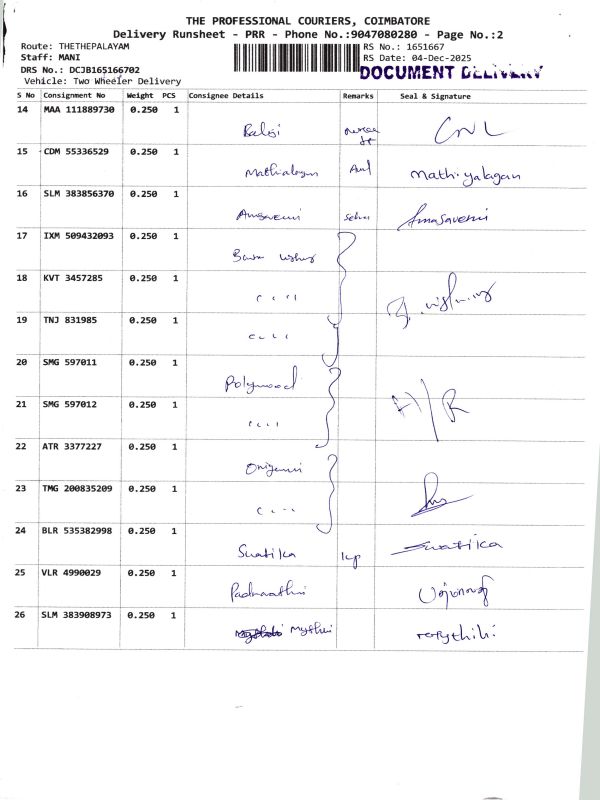 THE PROFESSIONAL COURIERS, COIMBATORE
Delivery Runsheet - PRR - Phone No.:9047080280 - Page No.:2
Route: THETHEPALAYAM
Staff: MANI
DRS No.: DCJB165166702
Vehicle: Two Wheeler Delivery
RS No.: 1651667
RS Date: 04-Dec-2025
DOCUMENT DELIVERY
S No Consignment No Weight PCS Consignee Details Remarks Seal & Signature
14 MAA 111889730 0.250 1
Balaji
15 CDM 55336529 0.250 1
Mathialagan Mathiyalagan
16 SLM 383856370 0.250 1
Annasaveni
17 IXM 509432093 0.250 1
18 KVT 3457285 0.250 1
19 TNJ 831985 0.250 1
20 SMG 597011 0.250 1
Polywood
21 SMG 597012 0.250 1
22 ATR 3377227 0.250 1
23 TMG 200835209 0.250 1
24 BLR 535382998 0.250 1
Swatika Swatika
25 VLR 4990029 0.250 1
26 SLM 383908973 0.250 1